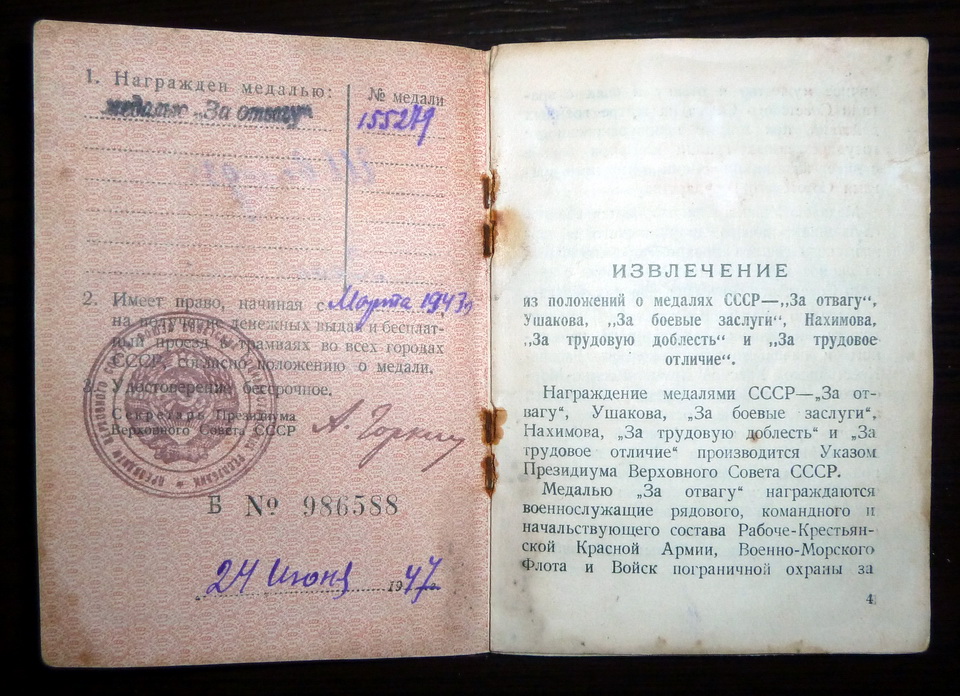 1. Награжден медалью:
медалью „За отвагу“
№ медали
155279
2. Имеет право, начиная с Марта 1943г
на получение денежных выдач и бесплат-
ный проезд в трамваях во всех городах
СССР, согласно положению о медали.
3. Удостоверение бессрочное.
Секретарь Президиума
Верховного Совета СССР
А. Горкин
Б № 986588
24 Июня 1947г.
ИЗВЛЕЧЕНИЕ
из положений о медалях СССР—„За отвагу“,
Ушакова, „За боевые заслуги“, Нахимова,
„За трудовую доблесть“ и „За трудовое
отличие“.
Награждение медалями СССР—„За от-
вагу“, Ушакова, „За боевые заслуги“,
Нахимова, „За трудовую доблесть“ и „За
трудовое отличие“ производится Указом
Президиума Верховного Совета СССР.
Медалью „За отвагу“ награждаются
военнослужащие рядового, командного и
начальствующего состава Рабоче-Крестьян-
ской Красной Армии, Военно-Морского
Флота и Войск пограничной охраны за
4